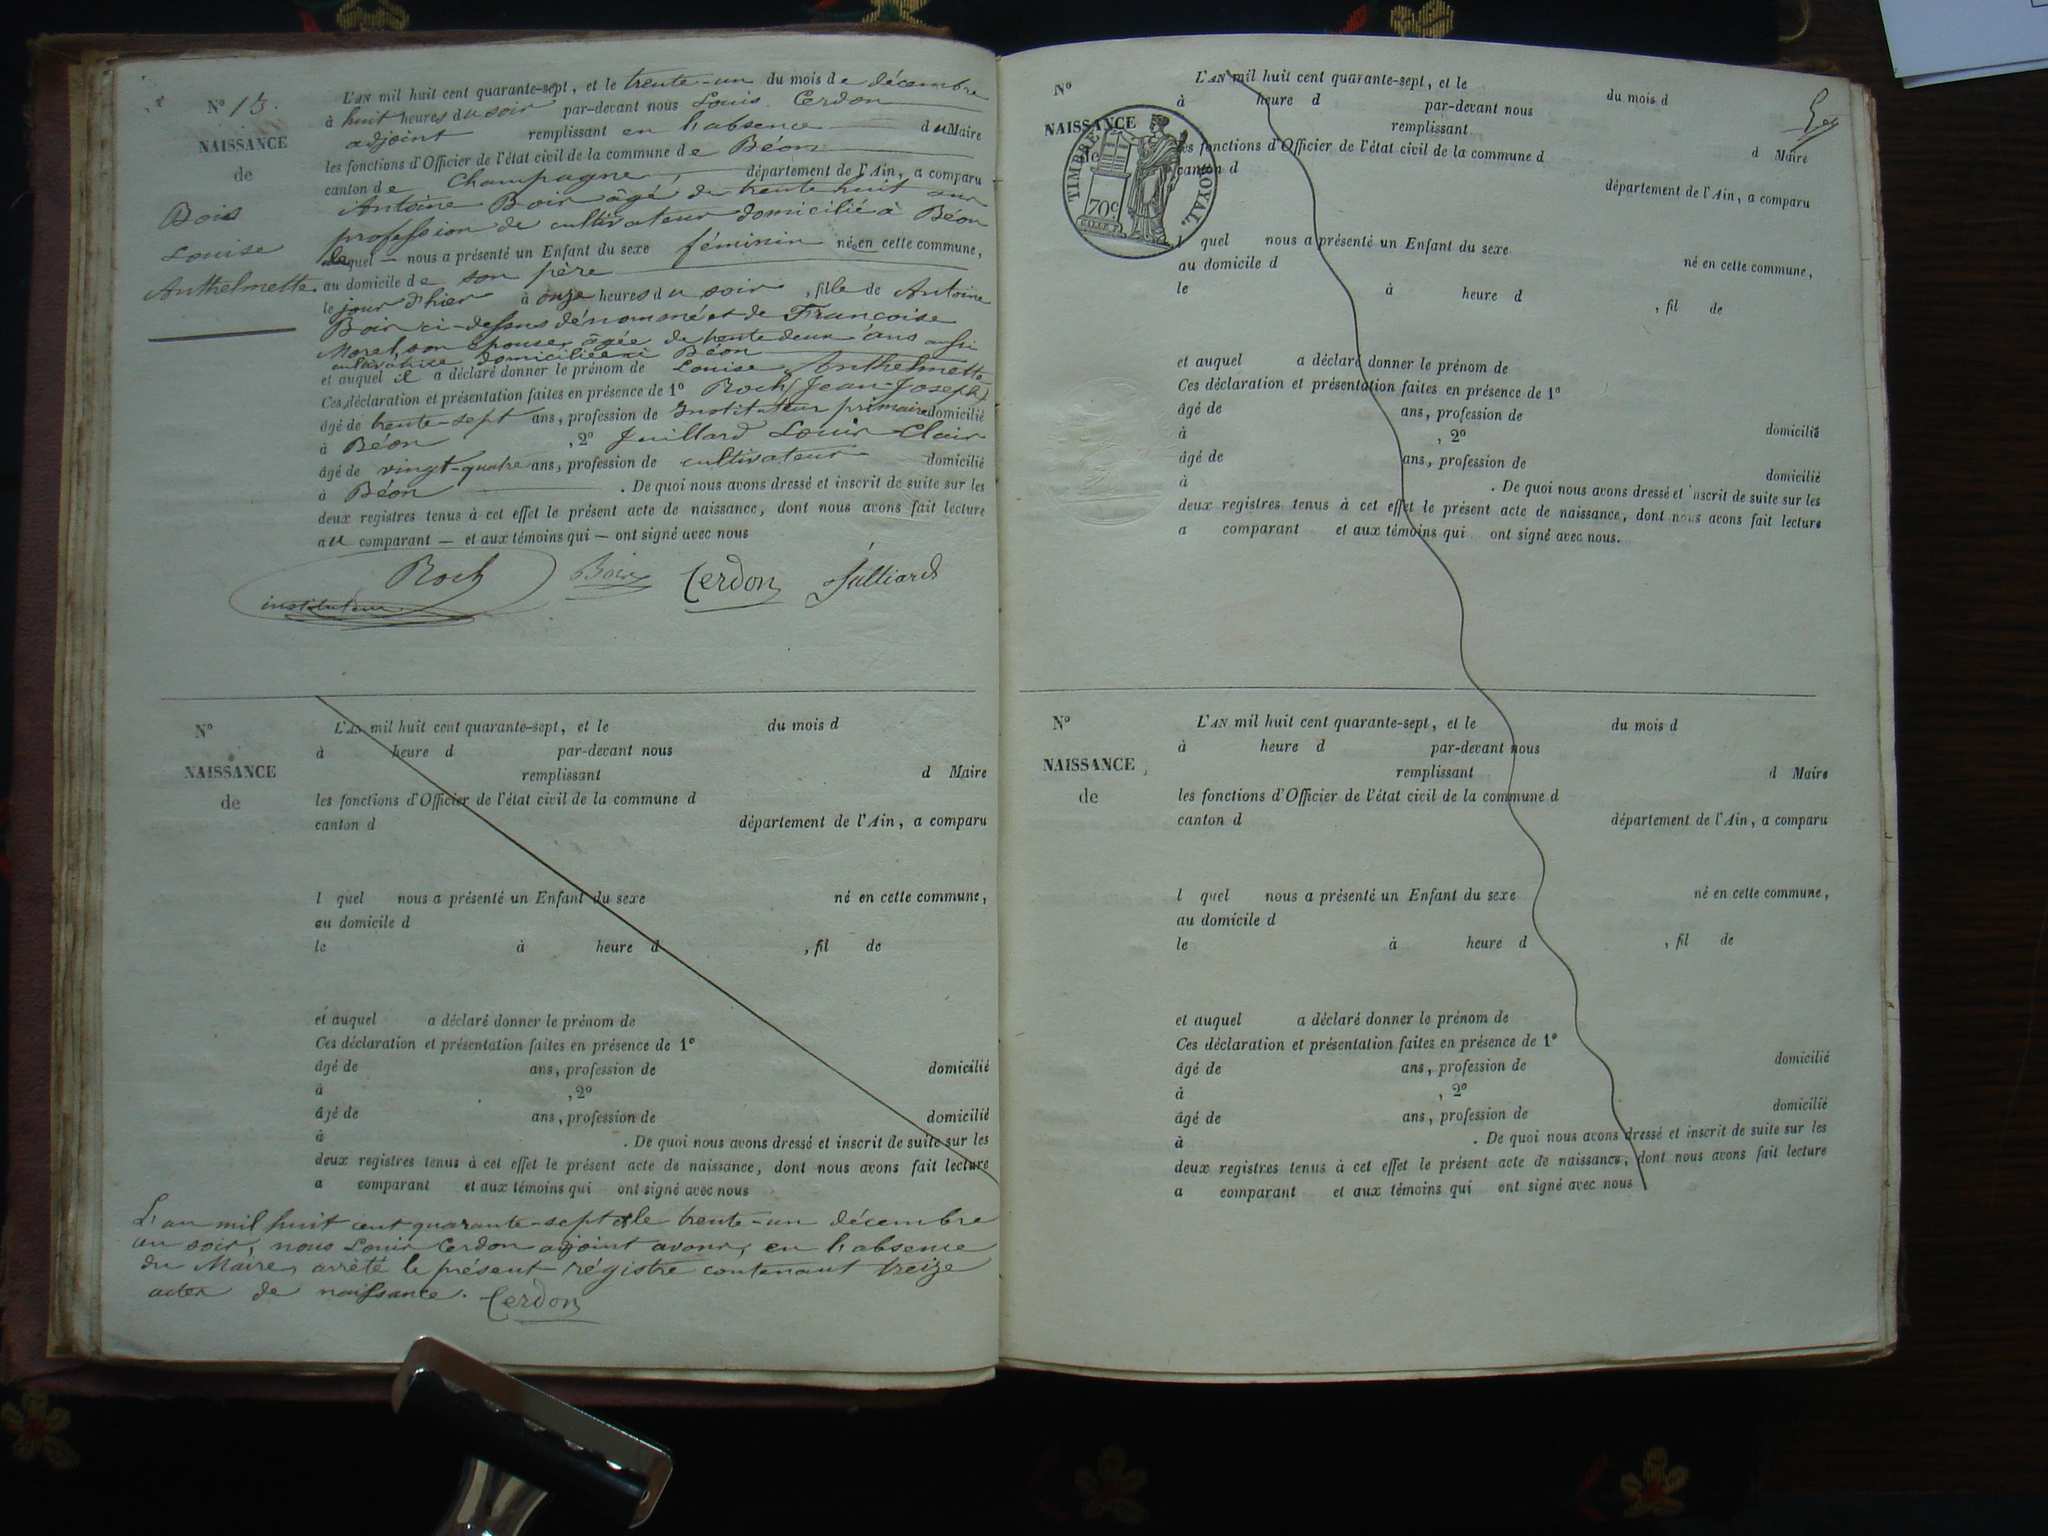 N° 13.
NAISSANCE
de
Bois
Louise
Anthelmette.
L'AN mil huit cent quarante-sept, et le trente-un du mois de décembre
à huit heures du soir par-devant nous Louis Cerdon
adjoint remplissant en l'absence du Maire
les fonctions d'Officier de l'état civil de la commune de Béon
canton de Champagne, département de l'Ain, a comparu
Antoine Bois âgé de trente huit ans
profession de cultivateur domicilié à Béon
lequel nous a présenté un Enfant du sexe féminin né en cette commune,
au domicile de son père
le jour d'hier à onze heures du soir, fille de Antoine
Bois ci-dessus dénommé et de Françoise
Morel, son épouse, âgée de trente deux ans aussi
cultivatrice domiciliée à Béon
et auquel il a déclaré donner le prénom de Louise Anthelmette
Ces déclaration et présentation faites en présence de 1° Roch, Jean-Joseph
âgé de trente-sept ans, profession de Instituteur primaire domicilié
à Béon, 2° Juillard Louis Clair
âgé de vingt-quatre ans, profession de cultivateur domicilié
à Béon. De quoi nous avons dressé et inscrit de suite sur les
deux registres tenus à cet effet le présent acte de naissance, dont nous avons fait lecture
au comparant — et aux témoins qui — ont signé avec nous
Roch Bois Cerdon Juilliard
instituteur
N°
NAISSANCE
de
L'AN mil huit cent quarante-sept, et le du mois d
à heure d par-devant nous
remplissant d Maire
les fonctions d'Officier de l'état civil de la commune d
canton d département de l'Ain, a comparu
l quel nous a présenté un Enfant du sexe né en cette commune,
au domicile d
le à heure d , fil de
et auquel a déclaré donner le prénom de
Ces déclaration et présentation faites en présence de 1°
âgé de ans, profession de domicilié
à , 2°
âgé de ans, profession de domicilié
à . De quoi nous avons dressé et inscrit de suite sur les
deux registres tenus à cet effet le présent acte de naissance, dont nous avons fait lecture
a comparant et aux témoins qui ont signé avec nous
L'an mil huit cent quarante-sept & le trente-un décembre
au soir, nous Louis Cerdon adjoint avons, en l'absence
du Maire, arrêté le présent régistre contenant treize
actes de naissance. Cerdon
N°
NAISSANCE
de
TIMBRE ROYAL.
70c
L'AN mil huit cent quarante-sept, et le du mois d
à heure d par-devant nous
remplissant d Maire
les fonctions d'Officier de l'état civil de la commune d
canton d département de l'Ain, a comparu
l quel nous a présenté un Enfant du sexe né en cette commune,
au domicile d
le à heure d , fil de
et auquel a déclaré donner le prénom de
Ces déclaration et présentation faites en présence de 1°
âgé de ans, profession de domicilié
à , 2°
âgé de ans, profession de domicilié
à . De quoi nous avons dressé et inscrit de suite sur les
deux registres tenus à cet effet le présent acte de naissance, dont nous avons fait lecture
a comparant et aux témoins qui ont signé avec nous.
N°
NAISSANCE
de
L'AN mil huit cent quarante-sept, et le du mois d
à heure d par-devant nous
remplissant d Maire
les fonctions d'Officier de l'état civil de la commune d
canton d département de l'Ain, a comparu
l quel nous a présenté un Enfant du sexe né en cette commune,
au domicile d
le à heure d , fil de
et auquel a déclaré donner le prénom de
Ces déclaration et présentation faites en présence de 1°
âgé de ans, profession de domicilié
à , 2°
âgé de ans, profession de domicilié
à . De quoi nous avons dressé et inscrit de suite sur les
deux registres tenus à cet effet le présent acte de naissance, dont nous avons fait lecture
a comparant et aux témoins qui ont signé avec nous